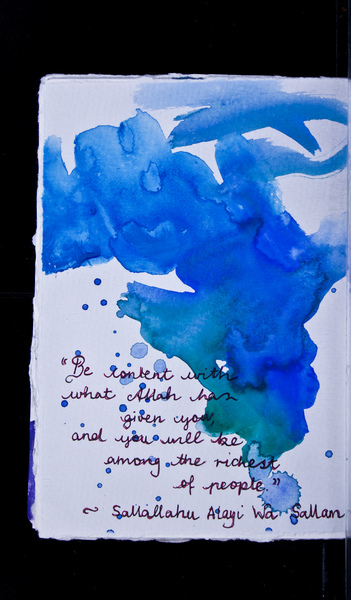 "Be content with
what Allah has
given you,
and you will be
among the richest
of people."
~ Sallallahu Alayi Wa Sallam